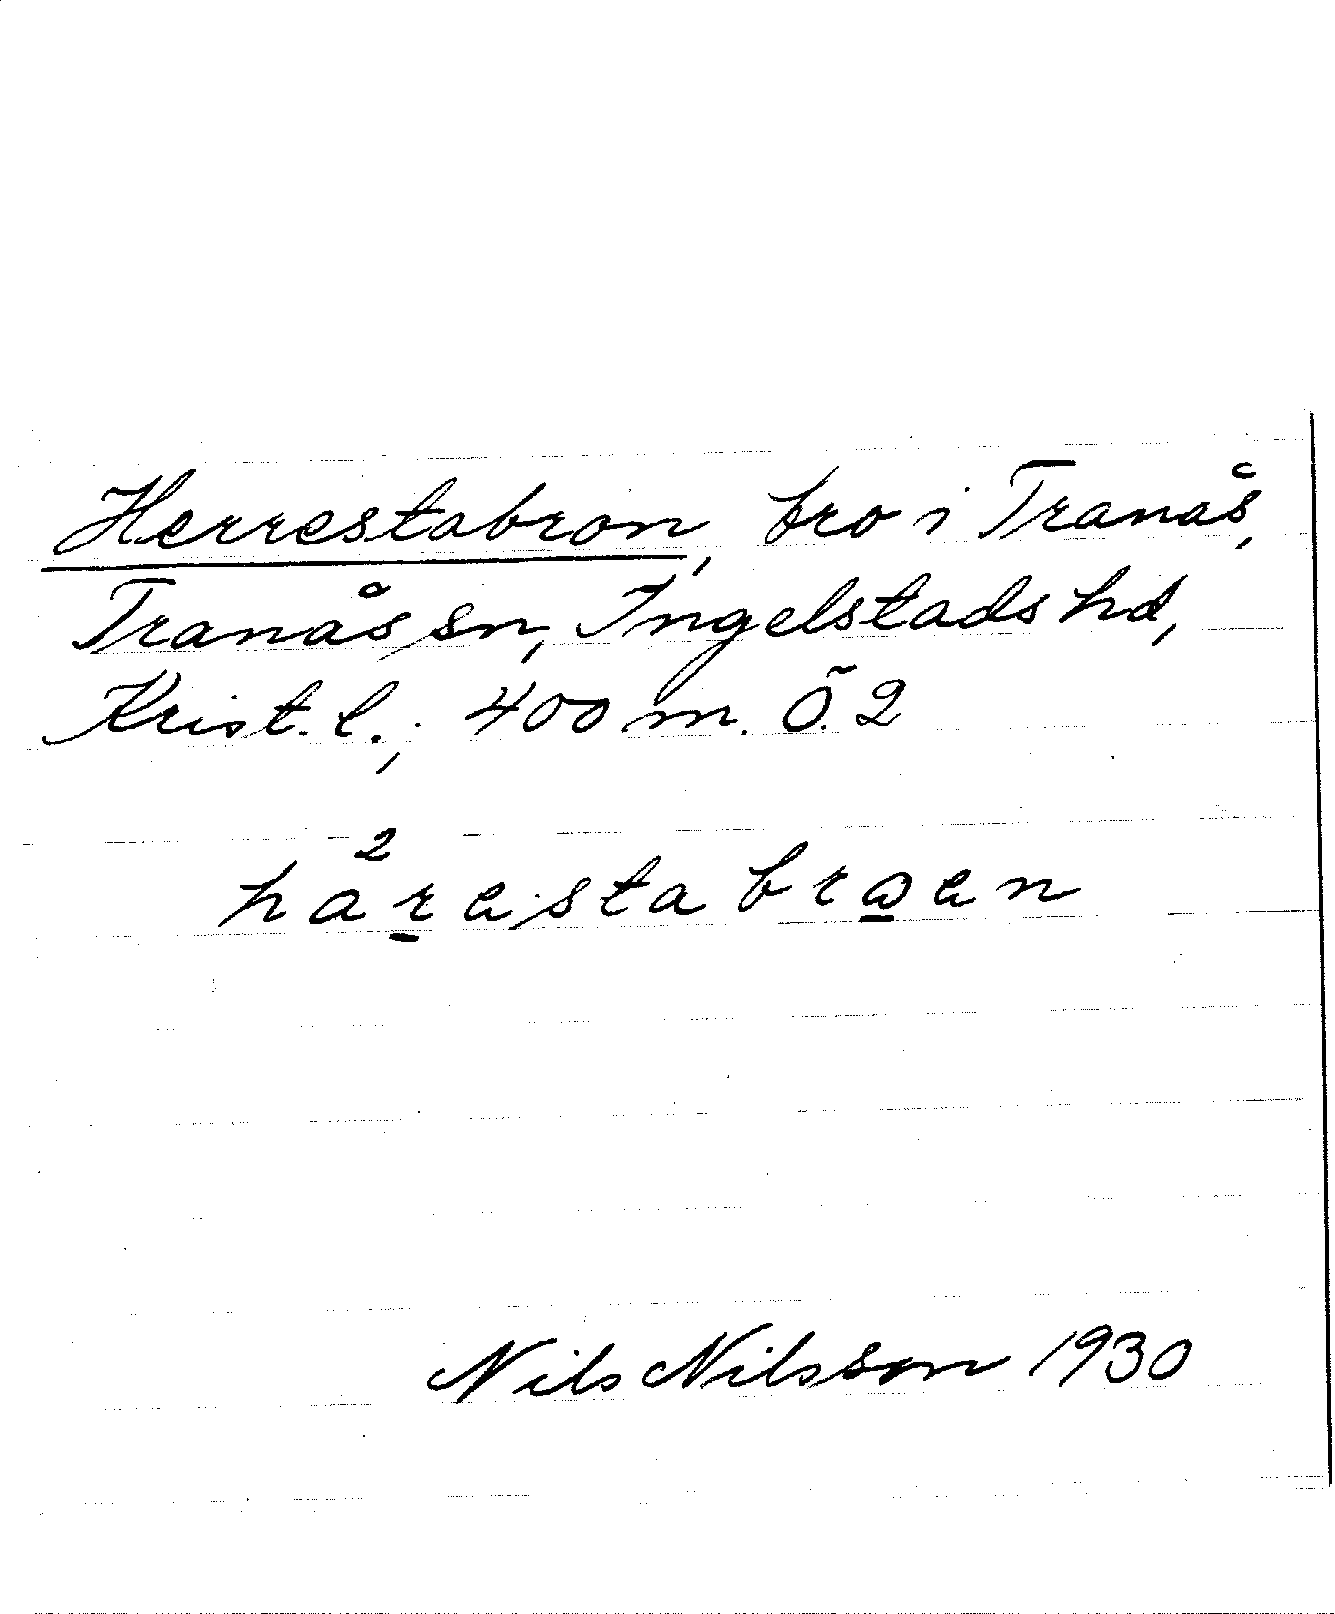 Herrestabron, bro i Tranås,
Tranås sn, Ingelstads hd,
Krist. l.; 400 m. Ö. 2
2
harestabroen
Nils Nilsson 1930